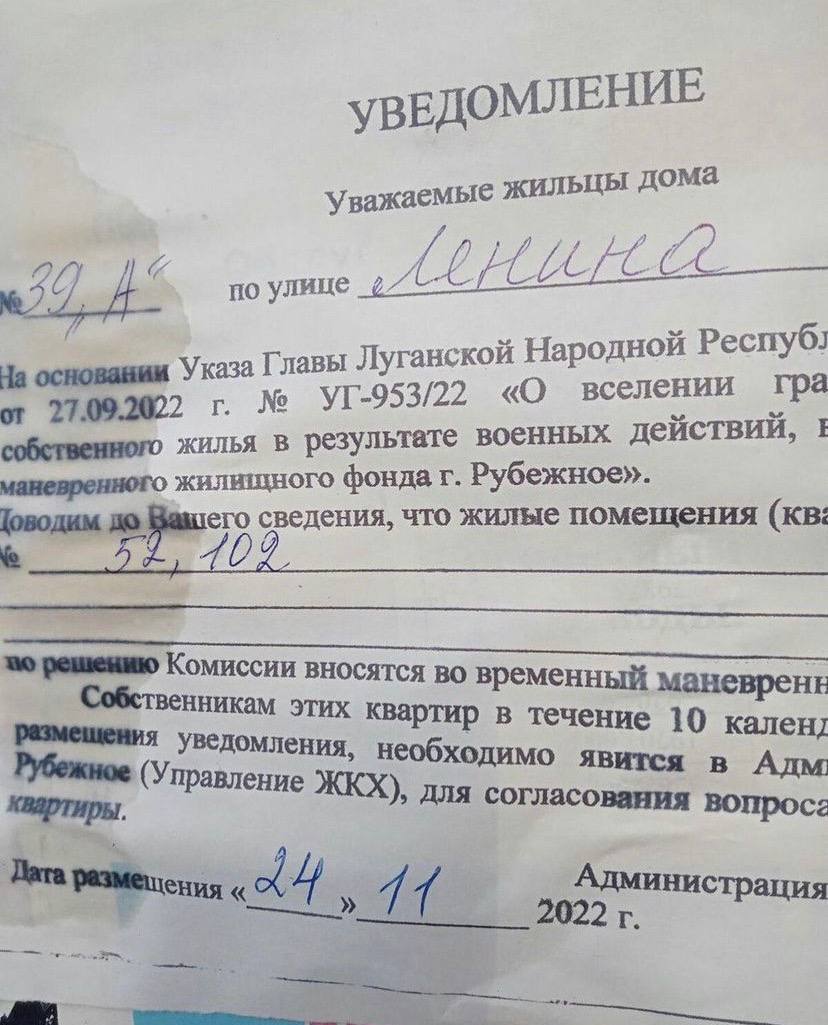 УВЕДОМЛЕНИЕ
Уважаемые жильцы дома
№ 39 „А“ по улице Ленина
На основании Указа Главы Луганской Народной Республ
от 27.09.2022 г. № УГ-953/22 «О вселении гра
собственного жилья в результате военных действий, в
маневренного жилищного фонда г. Рубежное».
Доводим до Вашего сведения, что жилые помещения (ква
№ 52, 102
по решению Комиссии вносятся во временный маневренн
Собственникам этих квартир в течение 10 календ
размещения уведомления, необходимо явится в Адми
Рубежное (Управление ЖКХ), для согласования вопроса
квартиры.
Администрация
Дата размещения « 24 » 11 2022 г.